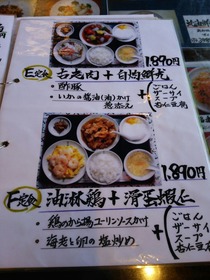 1,890円
E定食 古老肉 + 白灼鱿魚
・酢豚
・いかの醤油(油)かけ
葱添え
+
ごはん
ザーサイ
スープ
杏仁豆腐
1,890円
F定食 油淋鶏 + 滑蛋蝦仁
・鶏のから揚ユーリンソースかけ
・海老と卵の塩炒め
+
ごはん
ザーサイ
スープ
杏仁豆腐